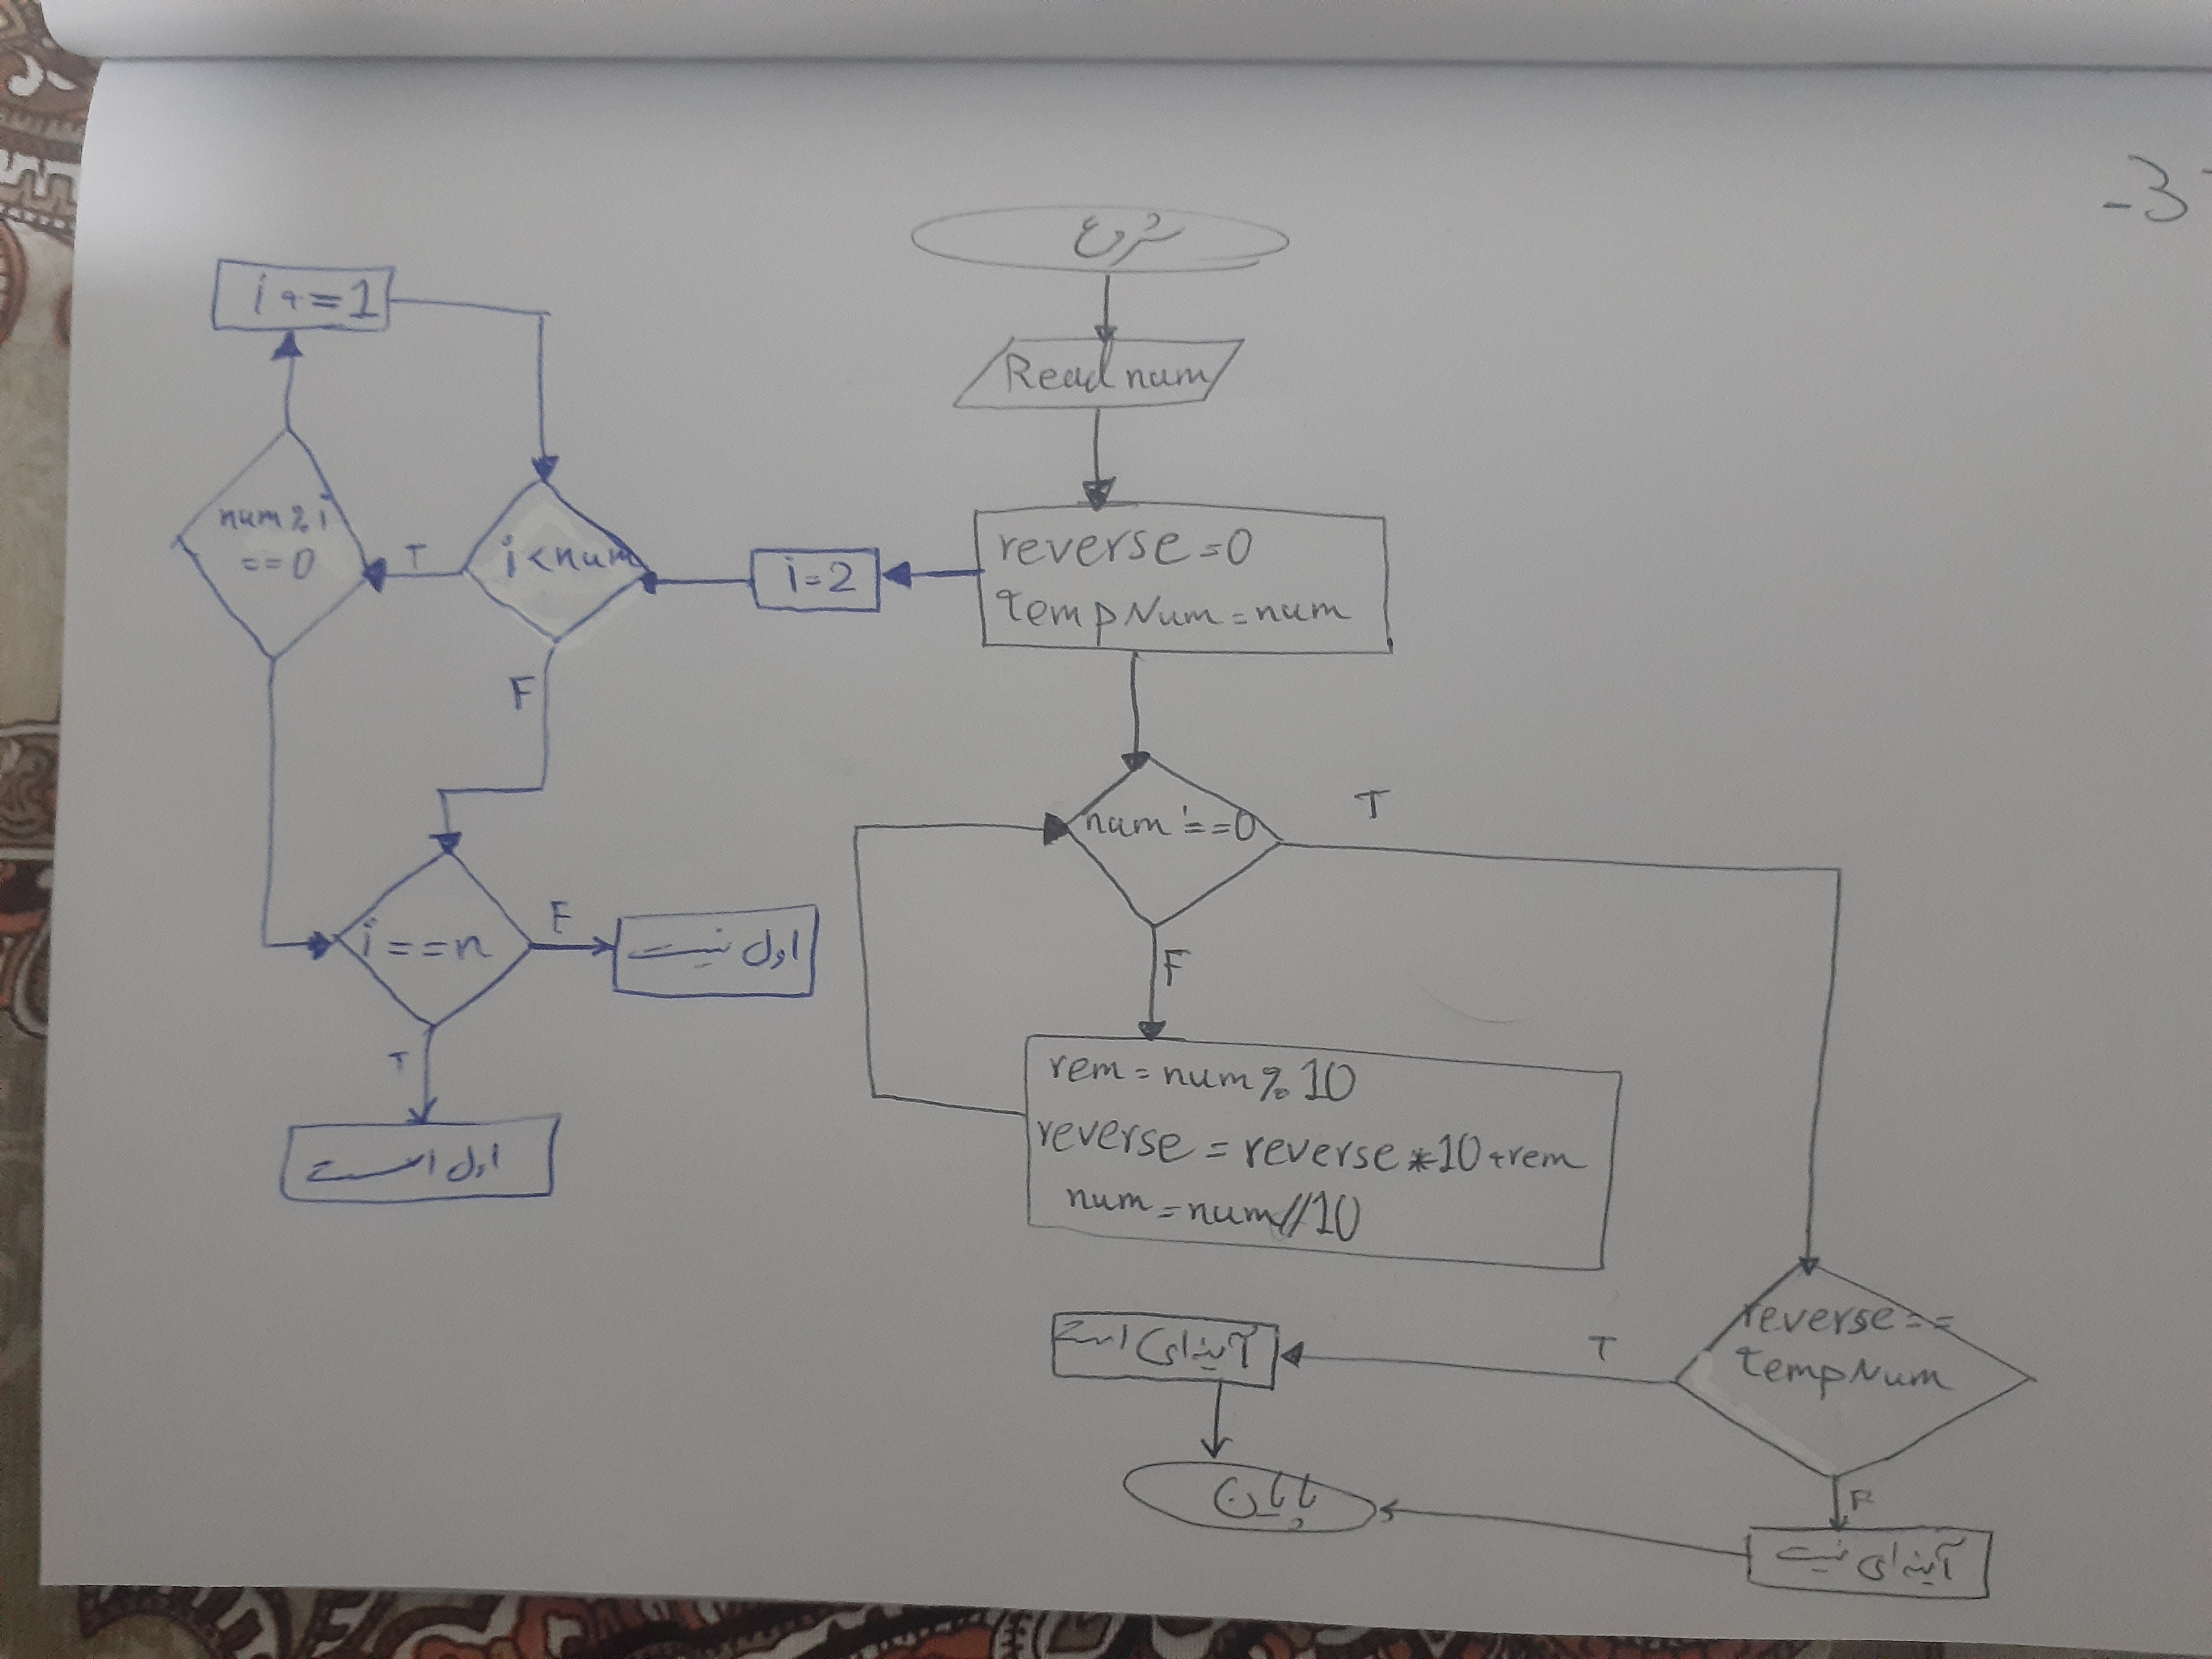 -3
شروع
Read num
reverse=0
tempNum=num
i=2
i<num
T
F
i+=1
num%i
==0
i==n
T
F
اول است
اول نیست
num==0
T
F
rem=num%10
reverse=reverse*10+rem
num=num//10
reverse==
tempNum
T
F
آینه‌ای است
آینه‌ای نیست
پایان